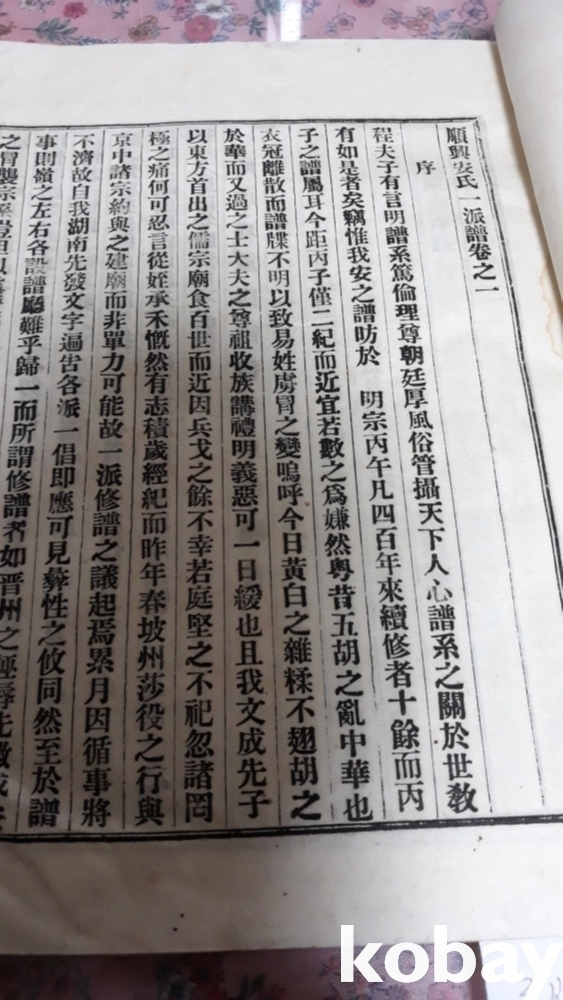 順興安氏一派譜卷之一
序
程夫子有言明譜系篤倫理尊朝廷厚風俗管攝天下人心譜系之關於世敎
有如是者矣竊惟我安之譜昉於 明宗丙午凡四百年來續修者十餘而丙
子之譜屬耳今距丙子僅二紀而近宜若數之爲嫌然粤昔五胡之亂中華也
衣冠離散而譜牒不明以致易姓虜冒之變嗚呼今日黃白之雜糅不翅胡之
於華而又過之士大夫之尊祖收族講禮明義惡可一日緩也且我文成先子
以東方首出之儒宗廟食百世而近因兵戈之餘不幸若庭堅之不祀忽諸罔
極之痛何可忍言從姪承禾慨然有志積歲經紀而昨年春坡州莎役之行與
京中諸宗約與之建廟而非單力可能故一派修譜之議起焉累月因循事將
不濟故自我湖南先發文字遍告各派一倡卽應可見彝性之攸同然至於譜
事則嶺之左右各設譜廳難乎歸一而所謂修譜者如晋州之
之冒襲宗
kobay